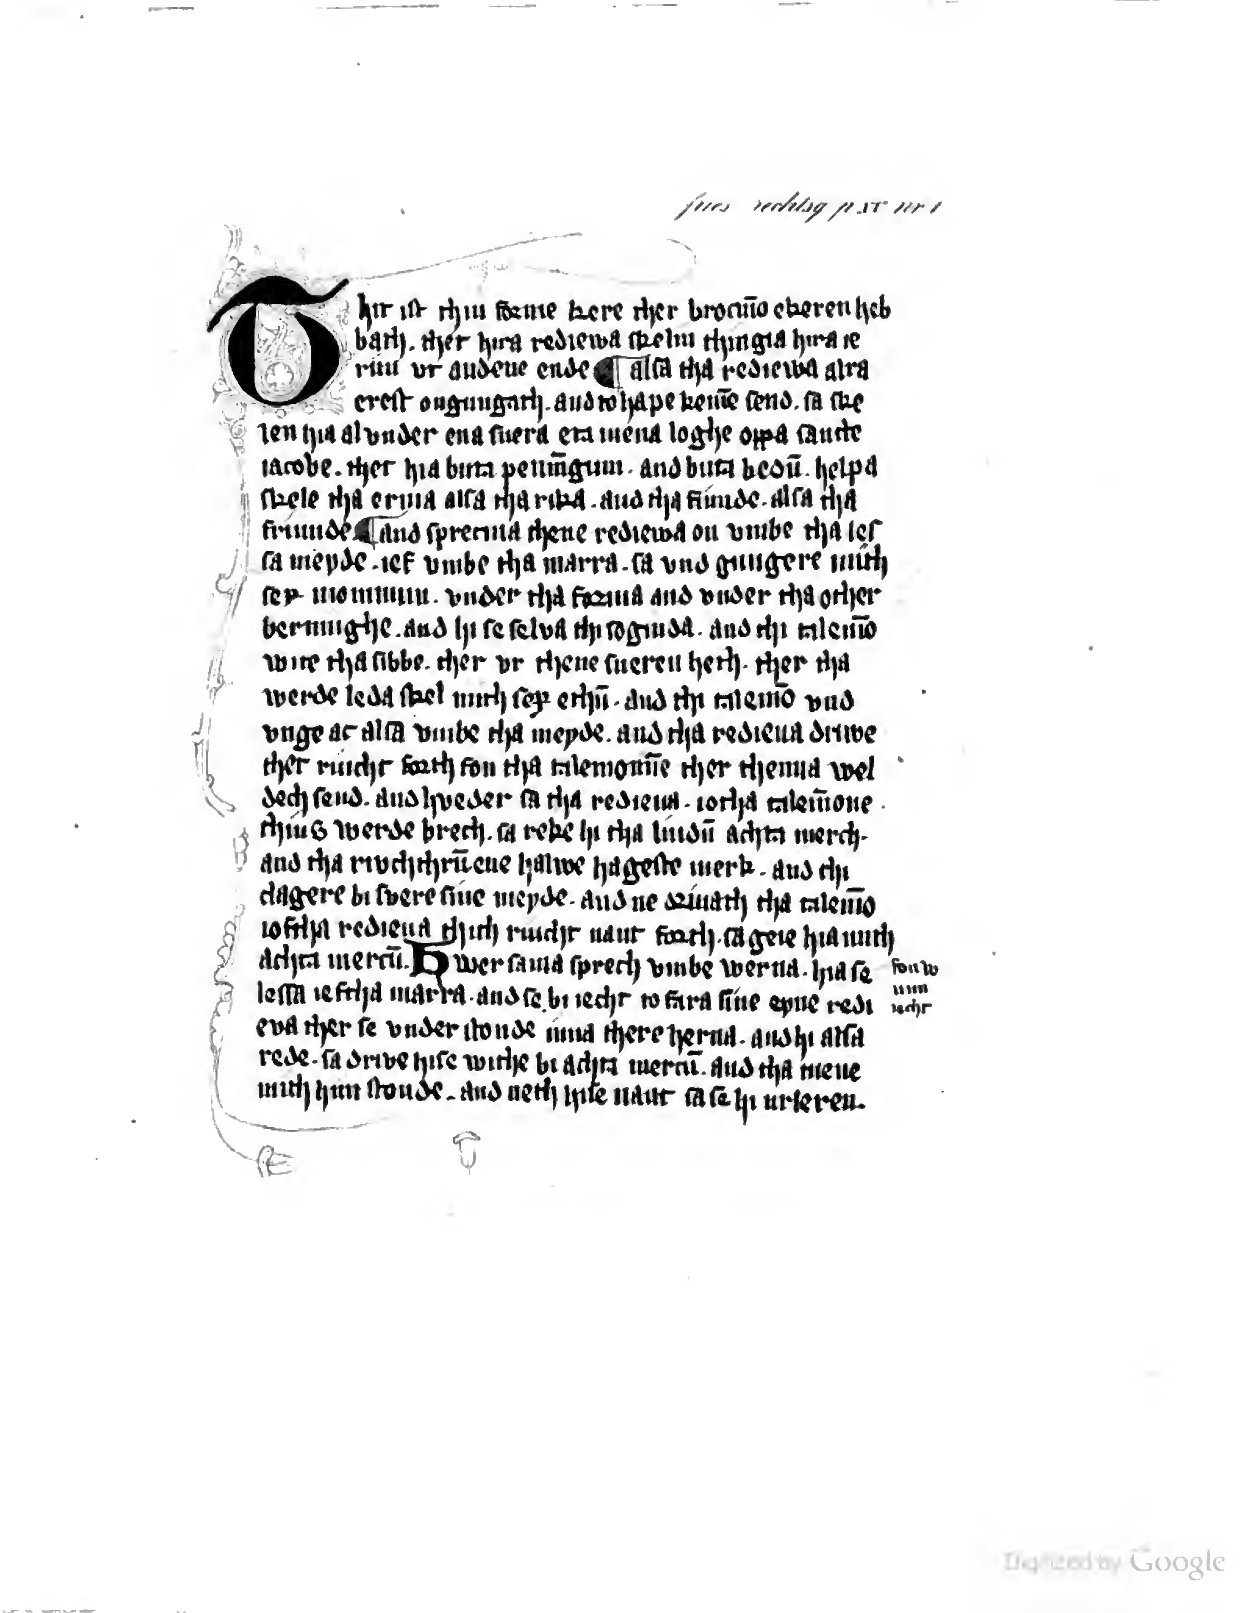 fries rechtsq p XV nr 1
Thit ist thiu forme kere ther brocm̄o ekeren heb
bath. ther hira rediewa skelin thingia hira ie
riun ur and ene ende ¶ alsa tha rediewa alra
erest ongungath. and to hape kem̄e send. sa ske
len hia al under ena suera eta mena loghe oppa sancte
iacobe. ther hia buta penni̅gum. and buta bedū. helpa
skele tha erma alsa tha rika. and tha fiunde. alsa tha
friunde ¶ and sprecma thene rediewa on umbe tha les
sa meyde. ief umbe tha marra. sa und gungere mith
sex monnum. under tha forma and under tha other
berninghe. and hi se selva thi sogenda. and thi talem̄o
wite tha sibbe. ther ur thene sueren heth. ther tha
werde leda skel mith sex ethū. and thi talem̄o und
unge ac alsa umbe tha meyde. and tha redieua driwe
ther riucht forth fon tha talemonn̄e ther thenna wel
dech send. and hveder sa tha redieua. ioftha talem̄one
thius werde brech. sa reke hi tha liudū achta merch.
and tha riuchthrū ene halwe hageste merk. and thi
clagere bi svere sine meyde. and ne driuath tha talem̄o
ioftha redieua thith riucht naut forth. sa geie hia mith
achta mercū. Hwer sama sprech umbe werna. hia se
lessa ieftha marra. and se bi iecht to fara sine eyne redi
eva ther se under stonde inna there herna. and hi alsa
rede. sa drive hise withe bi achta mercū. and tha mene
mith him stonde. and neth hise naut sa se hi urleren.
fon w
unn
iecht
Digitized by Google